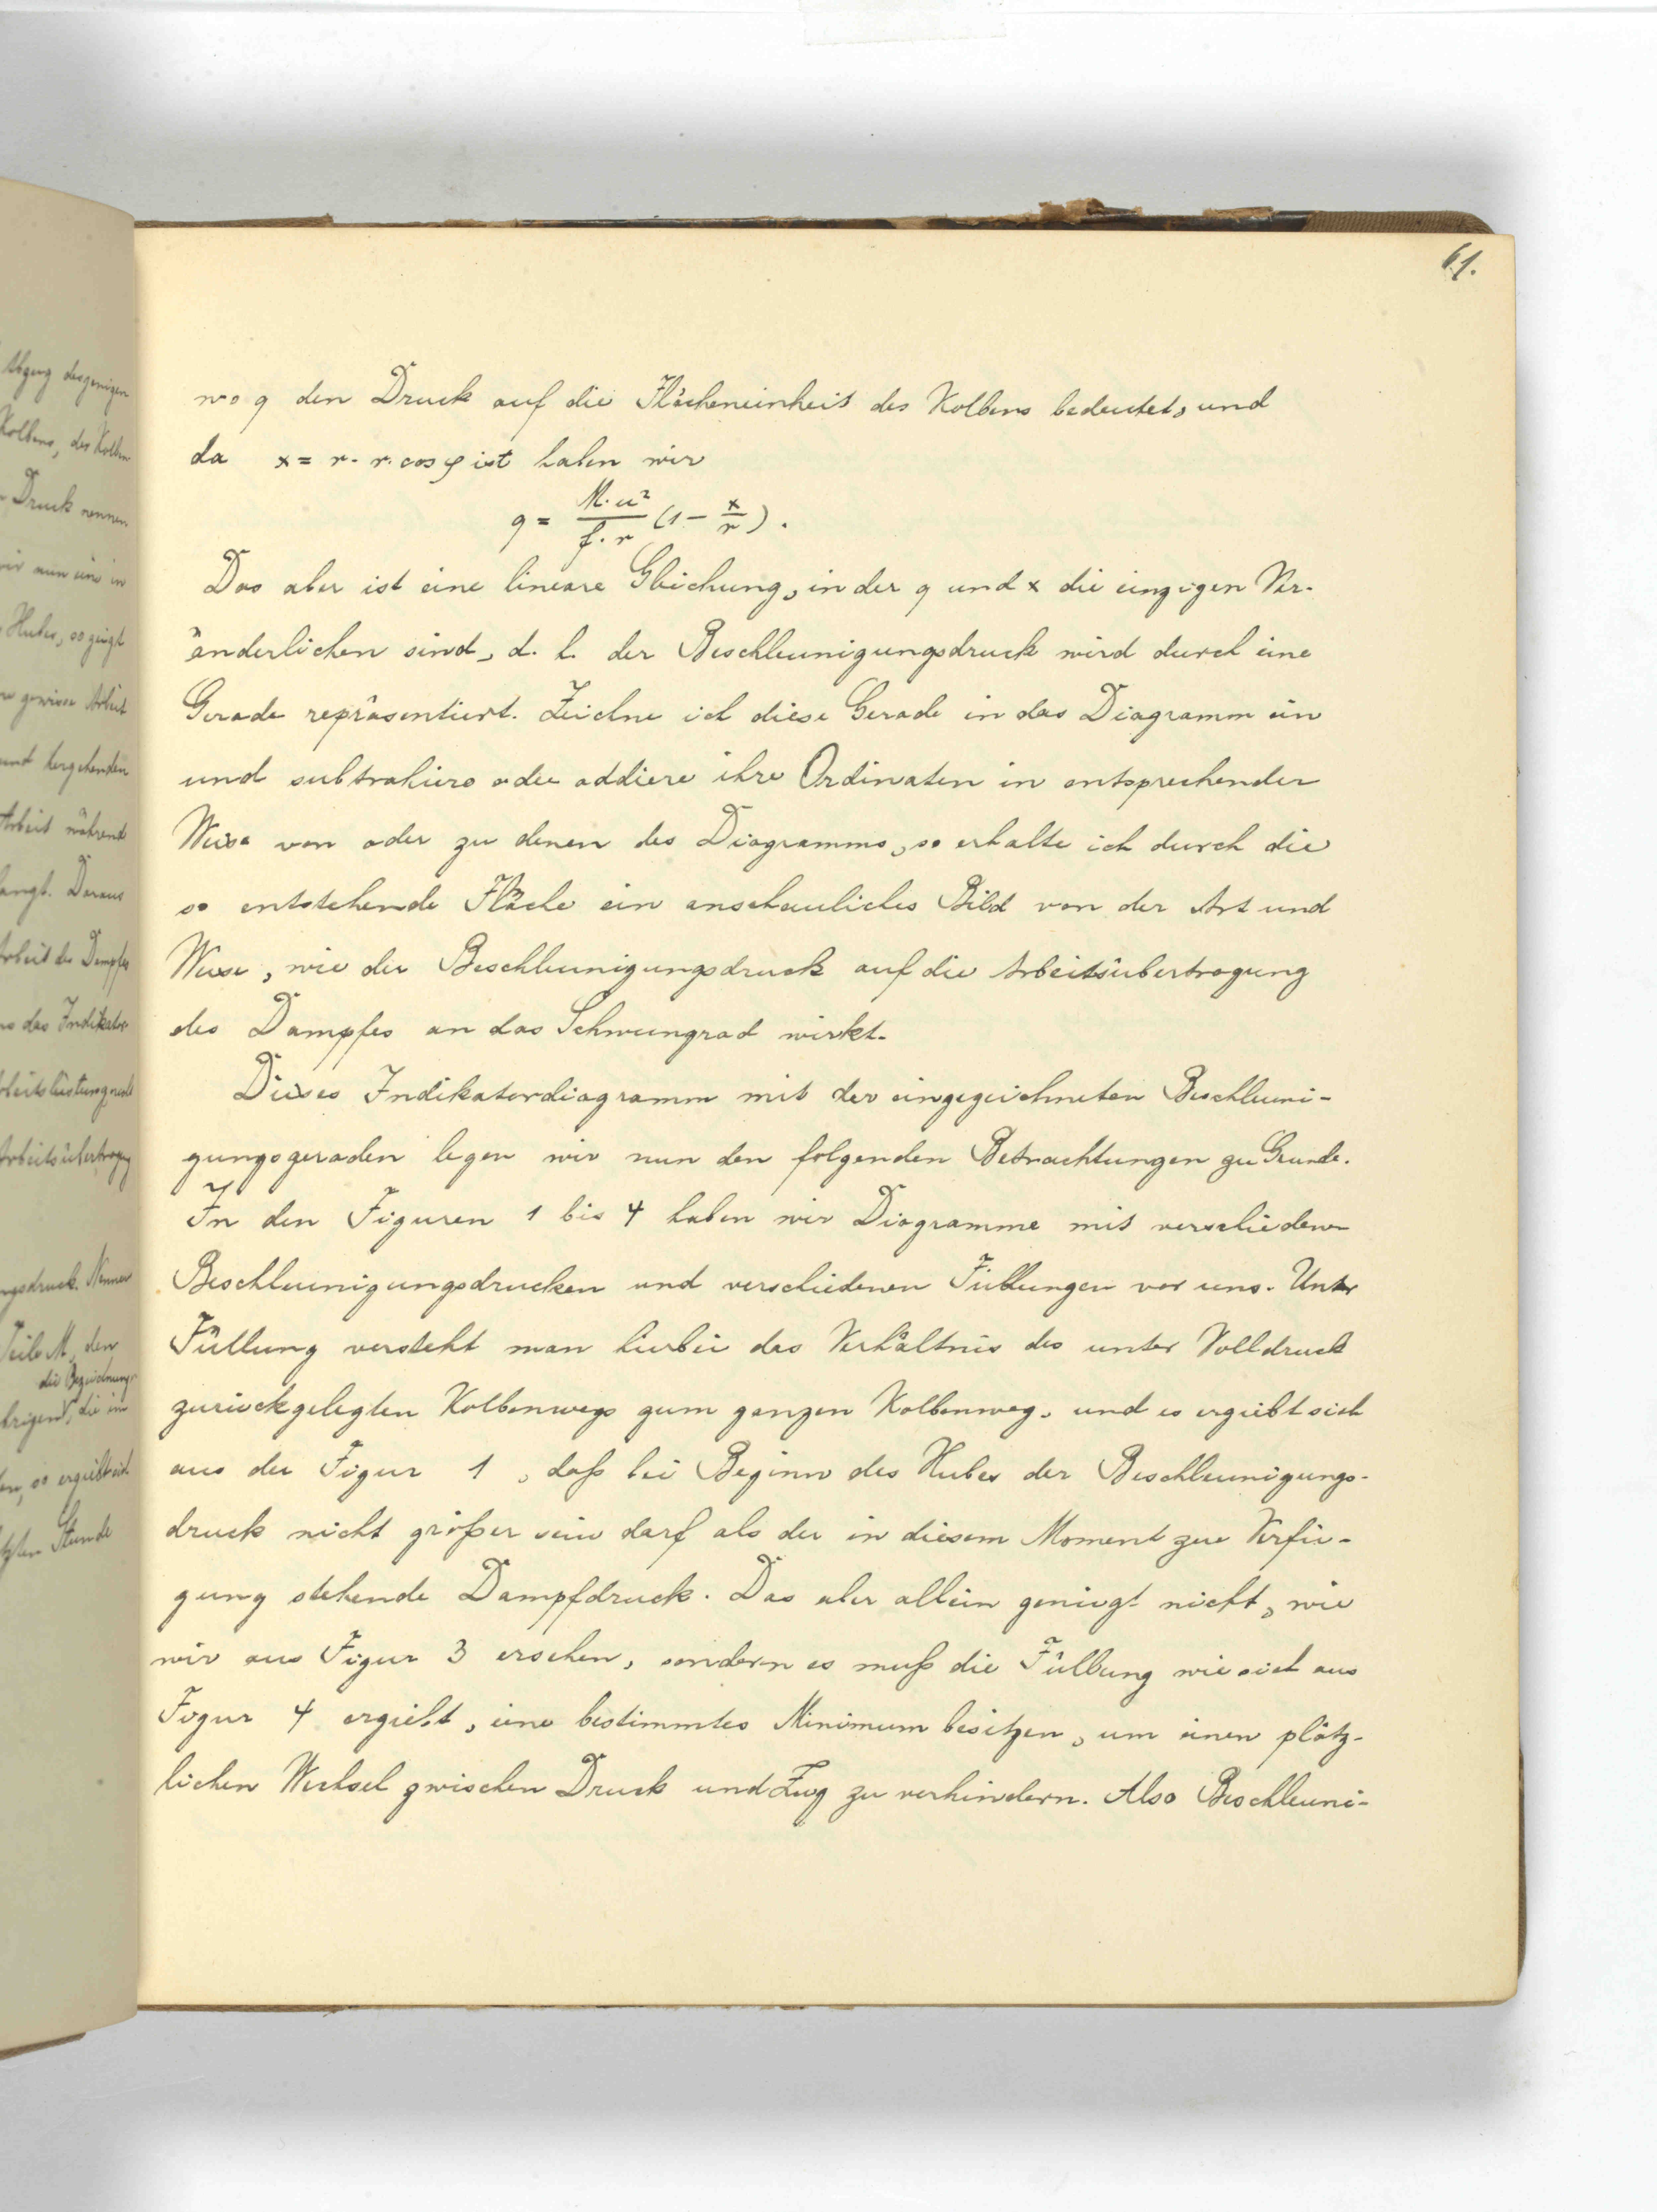 61.
wo q den Druck auf die Flächeneinheit des Kolbens bedeutet, und
da x = r - r. cos φ ist haben wir
q = M. u² / f. r (1 - x/r).
Das aber ist eine lineare Gleichung, in der q und x die einzigen Ver-
änderlichen sind, d. h. der Beschleunigungsdruck wird durch eine
Gerade repräsentiert. Zeichne ich diese Gerade in das Diagramm ein
und subtrahiere oder addiere ihre Ordinaten in entsprechender
Weise von oder zu denen des Diagramms, so erhalte ich durch die
so entstehende Fläche ein anschauliches Bild von der Art und
Weise, wie der Beschleunigungsdruck auf die Arbeitsübertragung
des Dampfes an das Schwungrad wirkt.
Dieses Indikatordiagramm mit der eingezeichneten Beschleuni-
gungsgeraden legen wir nun den folgenden Betrachtungen zu Grunde.
In den Figuren 1 bis 4 haben wir Diagramme mit verschiedenen
Beschleunigungsdrucken und verschiedenen Füllungen vor uns. Unter
Füllung versteht man hierbei das Verhältnis des unter Volldruck
zurückgelegten Kolbenwegs zum ganzen Kolbenweg, und es ergiebt sich
aus der Figur 1, daß bei Beginn des Hubes der Beschleunigungs-
druck nicht größer sein darf als der in diesem Moment zur Verfü-
gung stehende Dampfdruck. Das aber allein genügt nicht, wie
wir aus Figur 3 ersehen, sondern es muß die Füllung wie sich aus
Figur 4 ergiebt, eine bestimmtes Minimum besitzen, um einen plötz-
lichen Wechsel zwischen Druck und Zug zu verhindern. Also Beschleuni-